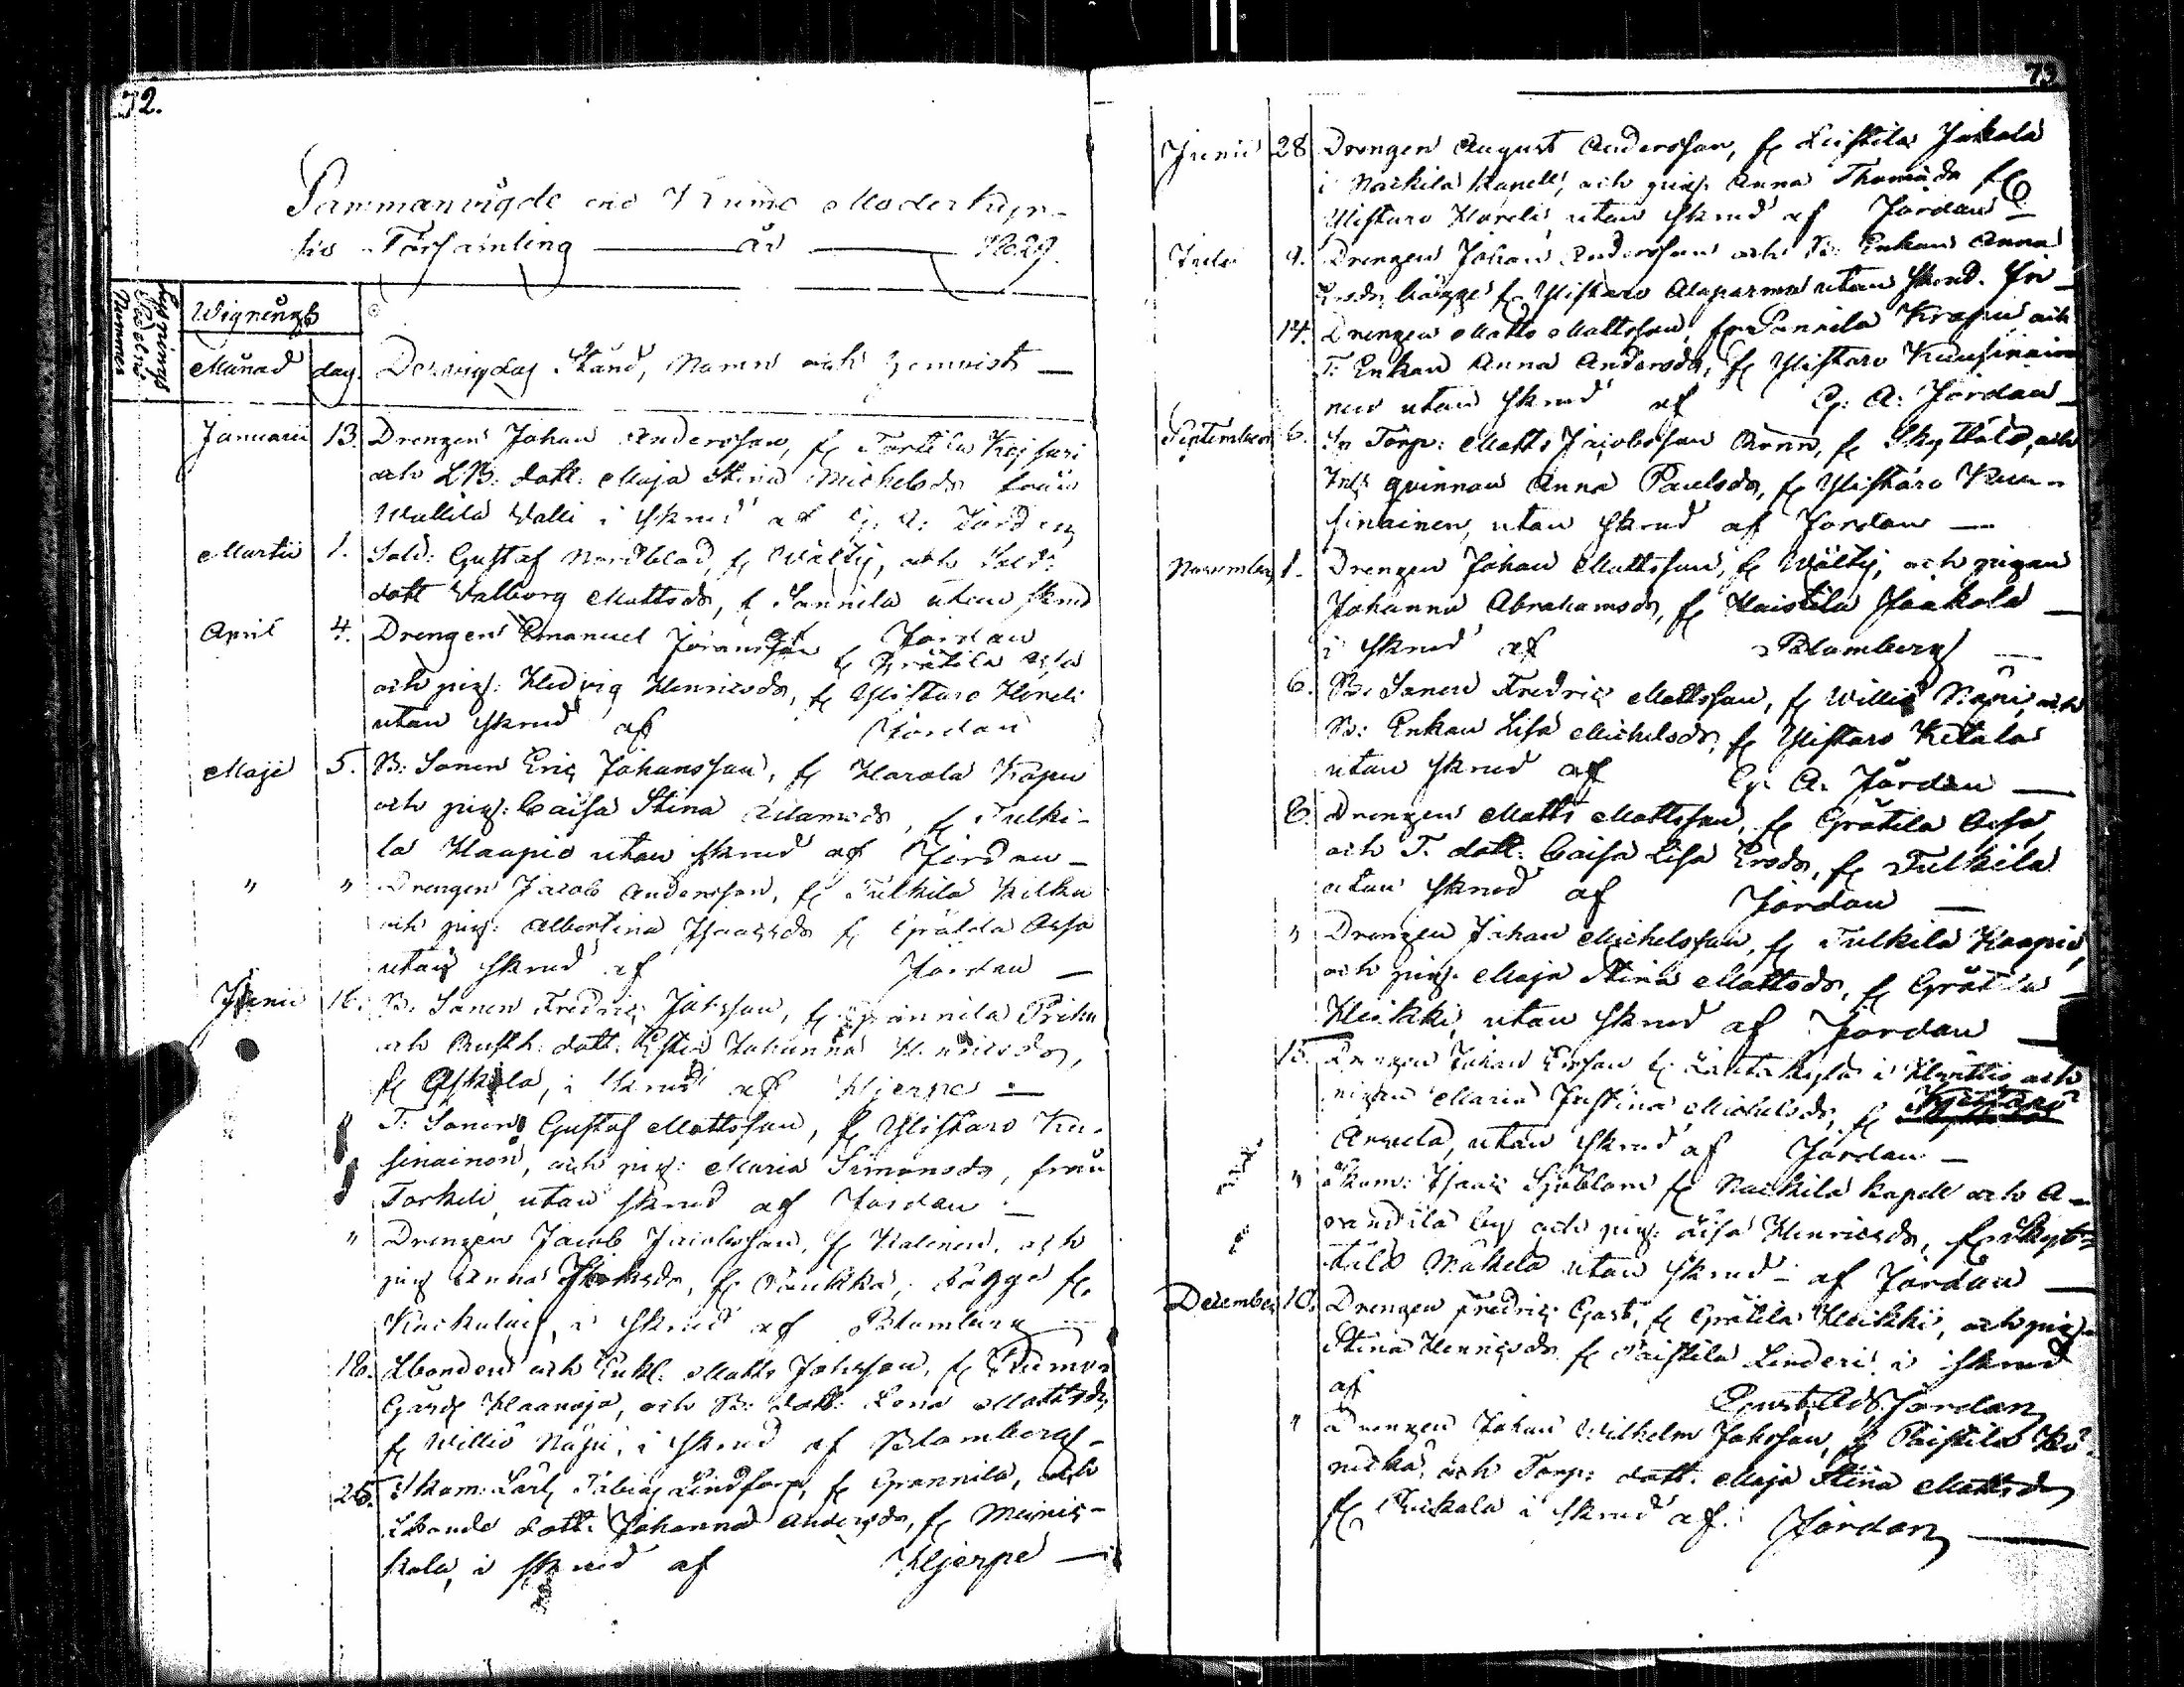 72.
Sammanvigde uti Kumo Moderkyr-
kio Församling — år — 1829.
Lysnings Sedelns Nummer
Wignings
Månad
dag
Derwigdas Stånd, Namn och hemvist —
Januarii 13. Drengen Johan Andersson, fr Torttila Keisari
och LB: dott: Maja Stina Michelsdr från
Wallila Walli i skrud af G. A: Jordan
Martii 1. Sold: Gustaf Nordblad, fr Wältij, och Sold:
dott Walborg Mattsdr, fr Sonnila utan skrud
af Jordan
April 4. Drengen Emanuel Joransson fr Grätila
och pig: Hedvig Henricsdr, fr Ylistaro Horeli
utan skrud af Jordan
Maji 5. B: Sonen Eric Johansson, fr Harola Kåpu
och pig: Caisa Stina Adamsdr, fr Tulki-
la Haapio utan skrud af Jordan —
" " Drengen Jacob Andersson, fr Tulkila Kilku
och pig: Albertina Isaacsdr fr Grätila
utan skrud af Jordan —
Junii 16. B. Sonen Fredric Johsson, fr Grannila Prihu
och dott: Johanna Henricsdr,
fr i skrud af Hjerpe —
" T: Sonen Gustaf Mattsson, fr Ylistaro Ku-
sinainen, och pig: Maria Simonsdr, från
Torkeli, utan skrud af Jordan —
" Drengen Jacob Jacobsson, fr och
pig Anna fr bägge fr
i skrud af Blomberg —
18. Lbonden och Enkl: Matts Johsson, fr Kumo
Gård Haanoja, och B: dott: Lena Mattsdr
fr Willio Näpi, i skrud af Blomberg —
25. Skom: Carl Tobias Lindfors, fr Grannila, och
Lbonde dott: Johanna Andersdr, fr Meinis-
kala, i skrud af Hjerpe —
73
Junii 28 Drengen August Andersson, fr Leistila Jakola
i Nackila Kapell, och pig: Anna Thomasdr fr
Ylistaro Horeli, utan skrud af Jordan —
Julii 9. Drengen Johan Andersson och B: Enkan Anna
bägge fr Ylistaro Alaparma utan skrud.
14. Drengen Matts Mattsson, fr Sonnila Krapu och
T: Enkan Anna Andersdr, fr Ylistaro Kuusinai-
nen utan skrud af G: A: Jordan —
September 6. Torp: Matts Jacobsson fr Skyttälä, och
quinnan Anna Paulsdr, fr Ylistaro Kuu-
sinainen, utan skrud af Jordan —
November 1. Drengen Johan Mattsson, fr Wältij, och pigan
Johanna Abrahamsdr, fr Haistila Jaakola —
i skrud af Blomberg —
6. B: Sonen Fredric Mattsson, fr Willio Näpi, och
B: Enkan Lisa Michelsdr, fr Ylistaro Ketala
utan skrud af G: A. Jordan —
8. Drengen Matts Mattsson, fr Grätila
och T. dott: Caisa Lisa Ersdr, fr Tulkila
utan skrud af Jordan —
" Drengen Johan Michelsson, fr Tulkila Haapio,
och pig: Maja Stina Mattsdr, fr Grätila
Heikki, utan skrud af Jordan —
15. Drengen Johan Ersson fr Lautakylä i Hvittis och
pigan Maria Justina Michelsdr, fr Ylistaro
Anzela, utan skrud af Jordan —
" Skom: Isaac Sjöblom fr Nackila Kapell och A-
randila by och pig: Lisa Henricsdr, fr Skyt-
tälä Mäkelä utan skrud — af Jordan —
December 10. Drengen Fredric Gast, fr Grätila Heikki, och pig
Stina Henricsdr fr Paistila Linderi i skrud
af Jordan
" Drengen Johan Wilhelm Johsson, fr Paistila
och Torp: dott: Maja Stina Mattsdr
fr i skrud af. Jordan —